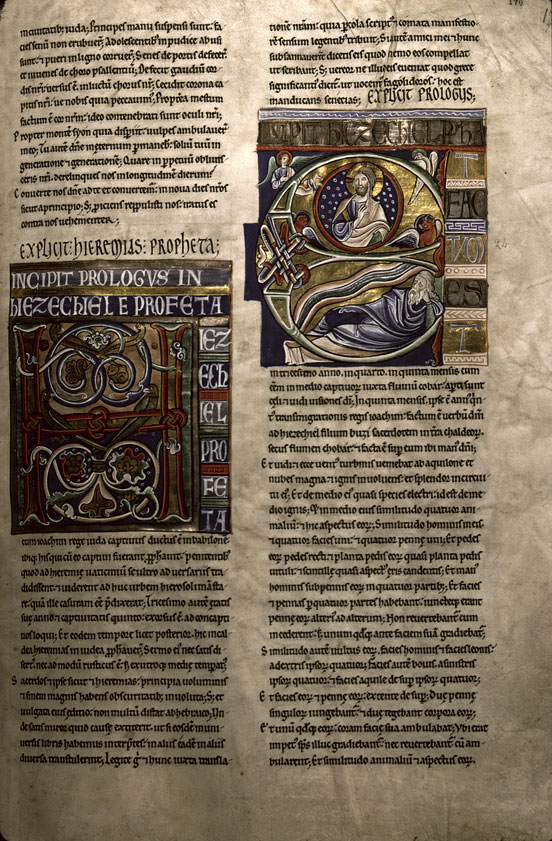 mulieres in syon humiliaverunt; et virgines in
civitatib; iuda; Principes manu suspensi sunt; fa-
cies senũ non erubuer̃; Adolescentib; inpudice abusi
sunt; & pueri in ligno corruer̃; Senes de portis defecer̃
et iuvenes de choro psallentiũ; Defecit gaudiũ cor-
dis nr̃i; versus ẽ in luctũ chorus nr̃; Cecidit corona ca-
pitis nr̃i; ve nobis quia peccavim; Propt̃ea mestum
factum ẽ cor nr̃m; ideo contenebrati sunt oculi nr̃i;
Propter montẽ syon quia disp̃iit; vulpes ambulauer̃
in eo; Tu autẽ dñe in et̃num p̃maneb; soliũ tuũ in
generatione & generationẽ; Quare in p̃petuũ oblivis
ceris nr̃i; derelinques nos in longitudinẽ dierum;
Converte nos dñe ad te et convertem; innova dies nr̃os
sicut a principio; S; p̃iciens reppulisti nos; iratus es
contra nos vehementer;
EXPLICIT: HIEREMIAS: PROPHETA;
INCIPIT PROLOGVS IN
HIEZECHIELE PROFETA
H
IEZ
ECH
IEL
PRO
FE
TA
cum ioachim rege iuda captivus ductus ẽ in babilonẽ
ibiq; his qui cũ eo captivi fuerant, p̃phavit; penitentib;
quod ad hieremie vaticiniũ se ultro adversariis tra-
didissent; & viderent adhuc urbem hierosolimã sta-
re; quã ille casuram eẽ p̃dixerat; Tricesimo autẽ etatis
suę anno; & captivitatis quinto; exorsus ẽ ad concapti-
vos loqui; Et eodem tempore licet posterior; hic in cal-
dea hieremias in iudea, p̃phaver̃; Sermo ei; nec satis di-
ser̃; nec admodũ rusticus ẽ; s; ex utroq; medie temp̃at;
Sacerdos & ipse sicut & hieremias; principia voluminis
& finem magnis habens obscuritatib; involuta; S; et
vulgata ei; editio; non multũ distat ab hebraico; Un-
de satis miror quid cause extiterit; ut si eosdem in uni-
versis libris habemus int̃p̃tes; in aliis eadẽ in aliis
diversa transtulerint; Legite g̃ & hunc iuxta transla-
tionẽ nr̃am; quia p̃ cola script & comata manifestio-
rẽ sensum legentib; tribuit; Si autẽ amici mei & hunc
subsannaver̃; dicetis eis quod nemo eos compellat
ut scribant; S; vereor ne illud eis eveniat quod grece
significanti; dicit̃; ut vocent̃ fagolidoros; hoc est
manducans senecias; EXPLICIT PROLOGVS;
INCIPIT HIEZECHIEL PPHA
E
T
FAC
TVM
ES
T
in tricesimo anno, in quarto, in quinta mensis cum
eẽm in medio captivor̃ iuxta fluviũ cobar; ap̃ti sunt
celi; & vidi visiones dĩ; In quinta mensis, ipse ẽ ann; qin-
t; transmigrationis regis ioachim; factum ẽ verbũ dñi
ad hiezechiel filium buzi sacerdotem in t̃ra chaldeor̃;
secus flumen chobar; & facta ẽ sup eum ibi man; dñi;
Et vidi; & ecce vent; turbinis veniebat ab aquilone et
nubes magna & ignis involvens; et splendor in circui-
tu ei; Et de medio ei; quasi species electri; id est de me-
dio ignis; & in medio ei; similitudo quatuor ani-
maliũ; & hic aspectus eor̃; Similitudo hominis in eis
& quatuor facies uni; & quatuor penne uni; Et pedes
eor̃ pedes recti; & planta pedis eor̃ quasi planta pedis
vituli; & scintille quasi aspect; eris candentis; Et man;
hominis sub pennis eor̃ in quatuor partib; Et facies
& pennas p̃ quatuor partes habebant; iuncteq; erant
penne eor̃ alteri; ad alterum; Non revertebant̃ cum
incederent; s; unum q̃dq; ante faciem suã gradiebat̃;
Similitudo autẽ vultus eor̃, facies hominis & facies leonis
a dextris ipsor̃ quatuor; facies autẽ bovis a sinistris
ipsor̃ quatuor; & facies aquile desup ipsor̃ quatuor;
Et facies eor̃ & pennę eor̃; extente desup; Duę pennę
singulor̃ iungebant̃; & duę tegebant corpora eor̃;
Et unũ q̃dq; eor̃; coram facie sua ambulabat; Ubi erat
impet; sp̃s; illuc gradiebant̃; nec revertebant̃ cũ am-
bularent; Et similitudo animaliũ & aspectus eor̃,